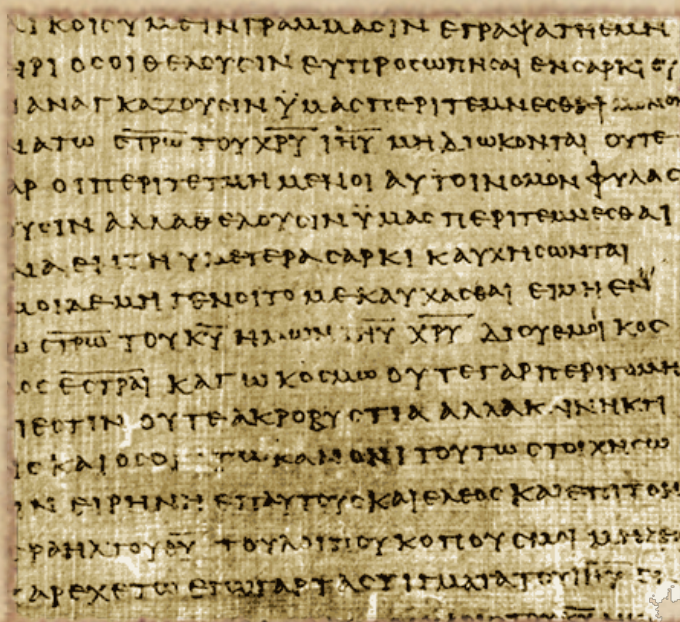 ΛΙΚΟΙΣ ΥΜΕΙΝ ΓΡΑΜΜΑΣΙΝ ΕΓΡΑΨΑ ΤΗ ΕΜΗ
ΙΡΙ ΟΣΟΙ ΘΕΛΟΥΣΙΝ ΕΥΠΡΟΣΩΠΗΣΑΙ ΕΝ ΣΑΡΚΙ
ΑΝΑΓΚΑΖΟΥΣΙΝ ΫΜΑΣ ΠΕΡΙΤΕΜΝΕΣΘΑΙ
ΜΑ ΤΩ Σ̅Τ̅Ρ̅Ω̅ ΤΟΥ Χ̅Ρ̅Υ̅ Ι̅Η̅Υ̅ ΜΗ ΔΙΩΚΟΝΤΑΙ ΟΥΤΕ
ΑΡ ΟΙ ΠΕΡΙΤΕΤΜΗΜΕΝΟΙ ΑΥΤΟΙ ΝΟΜΟΝ ΦΥΛΑΣ
ΟΥΣΙΝ ΑΛΛΑ ΘΕΛΟΥΣΙΝ ΫΜΑΣ ΠΕΡΙΤΕΜΝΕΣΘΑΙ
ΝΑ ΕΝ ΤΗ ΥΜΕΤΕΡΑ ΣΑΡΚΙ ΚΑΥΧΗΣΩΝΤΑΙ
ΜΟΙ ΔΕ ΜΗ ΓΕΝΟΙΤΟ ΜΕ ΚΑΥΧΑΣΘΑΙ ΕΙ ΜΗ ΕΝ
Ω Σ̅Τ̅Ρ̅Ω̅ ΤΟΥ Κ̅Υ̅ ΗΜΩΝ Ι̅Η̅Υ̅ Χ̅Ρ̅Υ̅ ΔΙ ΟΥ ΕΜΟΙ ΚΟΣ
ΟΣ Ε̅Σ̅Τ̅Ρ̅Α̅Ι̅ ΚΑΓΩ ΚΟΣΜΩ ΟΥΤΕ ΓΑΡ ΠΕΡΙΤΟΜΗ
Ι ΕΣΤΙΝ ΟΥΤΕ ΑΚΡΟΒΥΣΤΙΑ ΑΛΛΑ ΚΑΙΝΗ ΚΤΙ
ΙΣ ΚΑΙ ΟΣΟΙ ΤΩ ΚΑΝΟΝΙ ΤΟΥΤΩ ΣΤΟΙΧΗΣΩ
ΙΝ ΕΙΡΗΝΗ ΕΠ ΑΥΤΟΥΣ ΚΑΙ ΕΛΕΟΣ ΚΑΙ ΕΠΙ ΤΟΝ
ΣΡΑΗΛ ΤΟΥ Θ̅Υ̅ ΤΟΥ ΛΟΙΠΟΥ ΚΟΠΟΥΣ ΜΟΙ
ΠΑΡΕΧΕΤΩ ΕΓΩ ΓΑΡ ΤΑ ΣΤΙΓΜΑΤΑ ΤΟΥ Ι̅Η̅Υ̅